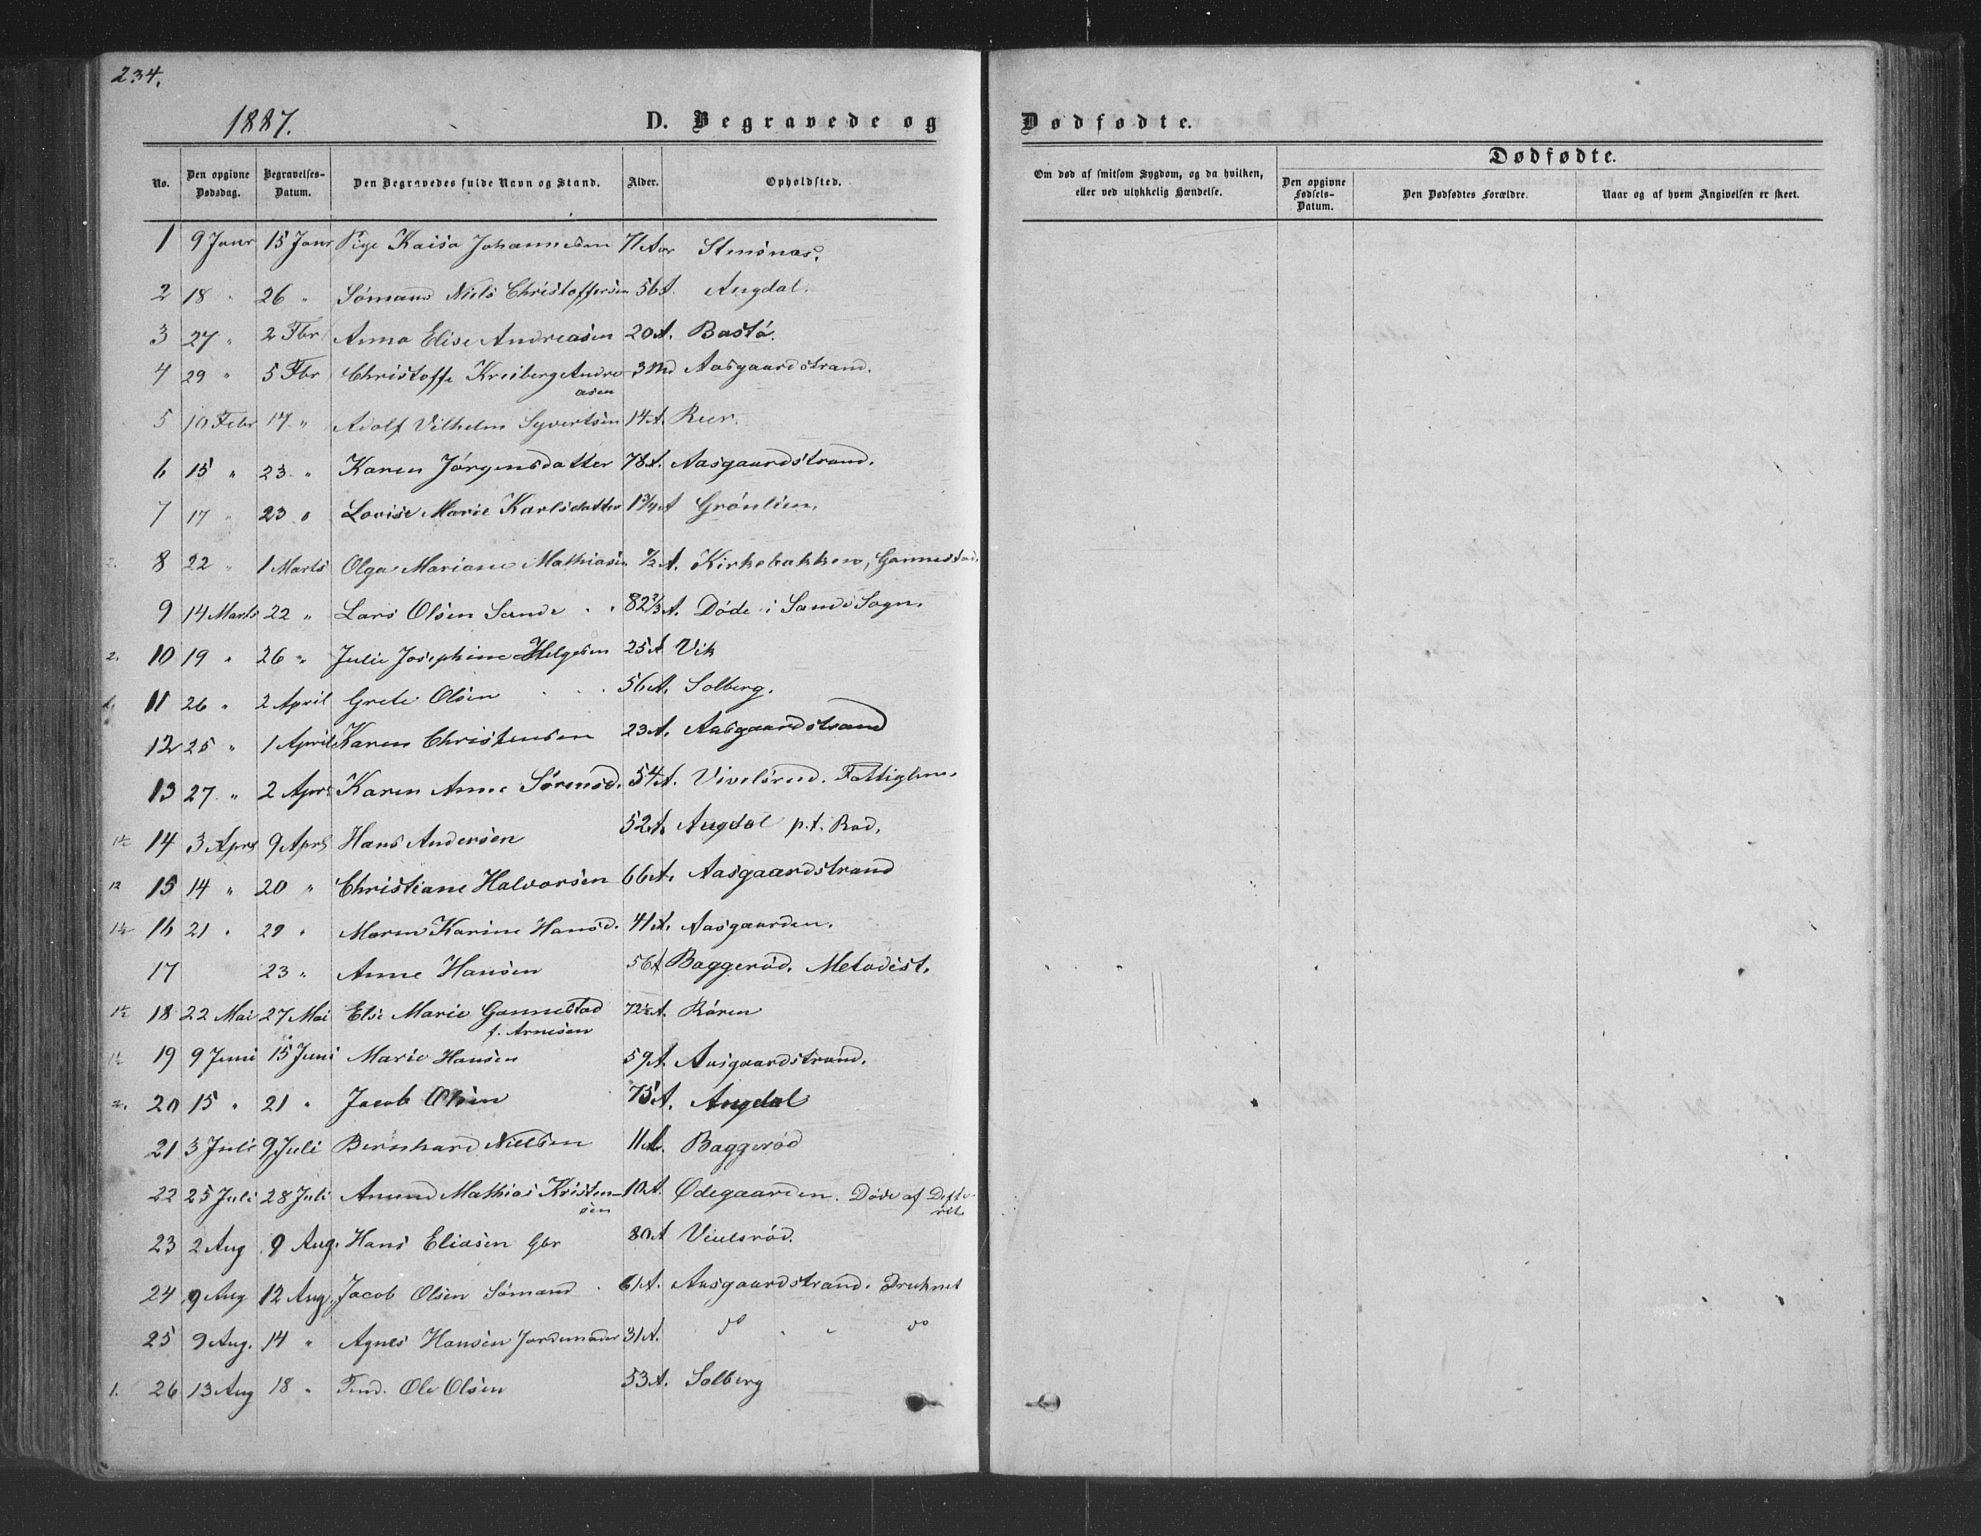 234.
1887.
D. Begravede og
Dødfødte.
No.
Den opgivne Dødsdag.
Begravelses-Datum.
Den Begravedes fulde Navn og Stand.
Alder.
Opholdsted.
Om død af smitsom Sygdom, og da hvilken, eller ved ulykkelig Hændelse.
Dødfødte.
Den opgivne Fødsels-Datum.
Den Dødfødtes Forældre.
Naar og af hvem Angivelsen er skeet.
1 9 Janr 15 Janr Pige Kaisa Johannesen 71 Aar Stensnæs.
2 18 " 26 " Sømand Niels Christoffersen 56 A. Augdal.
3 27 " 2 Fbr Anna Elise Andreasen 20 A. Bastø.
4 29 " 5 Fbr Christoffe Kreiberg Andreasen 3 Md Aasgaardstrand.
5 10 Febr 17 " Adolf Vilhelm Syvertsen 14 A. Rør.
6 15 " 23 " Karen Jørgensdatter 78 A. Aasgaardstrand.
7 17 " 23 " Lovise Marie Karlsdatter 1 3/4 A Grønlien.
8 22 " 1 Marts Olga Mariane Mathiasen 1/2 A. Kirkebakken, Gannestad.
9 14 Marts 22 " Lars Olsen Sande 82 2/3 A. Døde i Sande Sogn.
2. 10 19 " 26 " Julie Josephine Helgesen 25 A Vik
11 26 " 2 April Grete Olsen 56 A. Solberg.
12 25 " 1 April Karen Christensen 23 A. Aasgaardstrand
13 27 " 2 Apri Karen Anne Sørensd. 54 A. Vivelsrud. Fattiglem.
14 3 Apri 9 Apri Hans Andersen 52 A. Augdal p.t. Rød.
12 15 14 " 20 " Christiane Halvorsen 66 A. Aasgaardstrand
16 21 " 29 " Maren Karine Hansd. 41 A. Aasgaarden.
17 23 " Anne Hansen 56 A Baggerød. Metodist.
18 22 Mai 27 Mai Else Marie Gannestad f. Arnesen 72 1/2 A. Røren
19 9 Juni 15 Juni Marie Hansen 59 A. Aasgaardstrand.
20 15 " 21 " Jacob Olsen 75 A. Augdal
21 3 Juli 9 Juli Bernhard Nielsen 11 A. Baggerød
22 25 Juli 28 Juli Amund Mathias Kristensen 10 A. Ødegaarden. Døde af Difterit
23 2 Aug 9 Aug. Hans Eliasen Gbr 80 A Vivelsrød.
24 9 Aug 12 Aug. Jacob Olsen Sømand 61 A. Aasgaardstrand. Druknet
25 9 Aug. 14 " Agnes Hansen Jordemoder 31 A. do " " do
1. 26 13 Aug 18 " Ole Olsen 53 A. Solberg